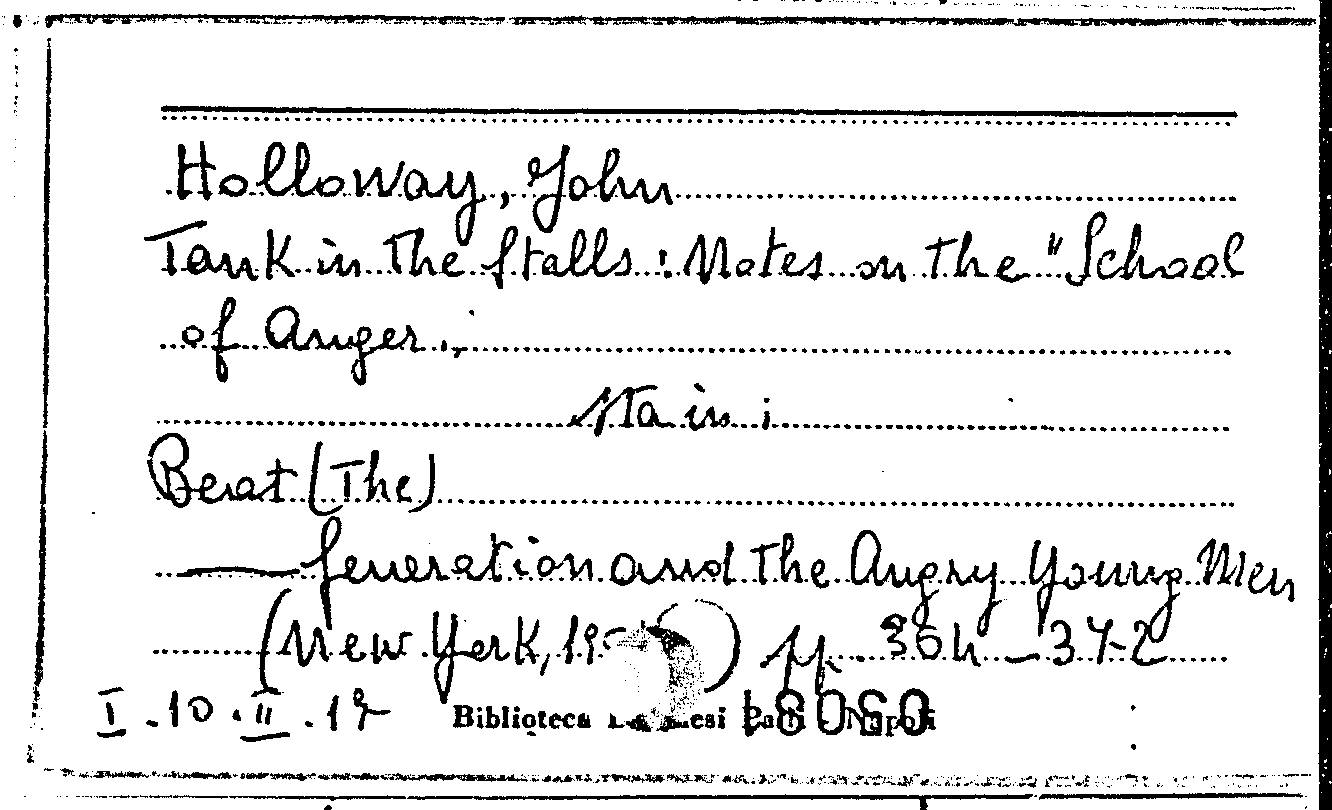 Holloway, John
Tank in the Stalls : Notes on the "School
of Anger.,
Sta in :
Beat (The)
— Generation and The Angry Young Men
(New York, 19 ) pp. 364 – 372
I . 10 . II . 17
Biblioteca Napoli